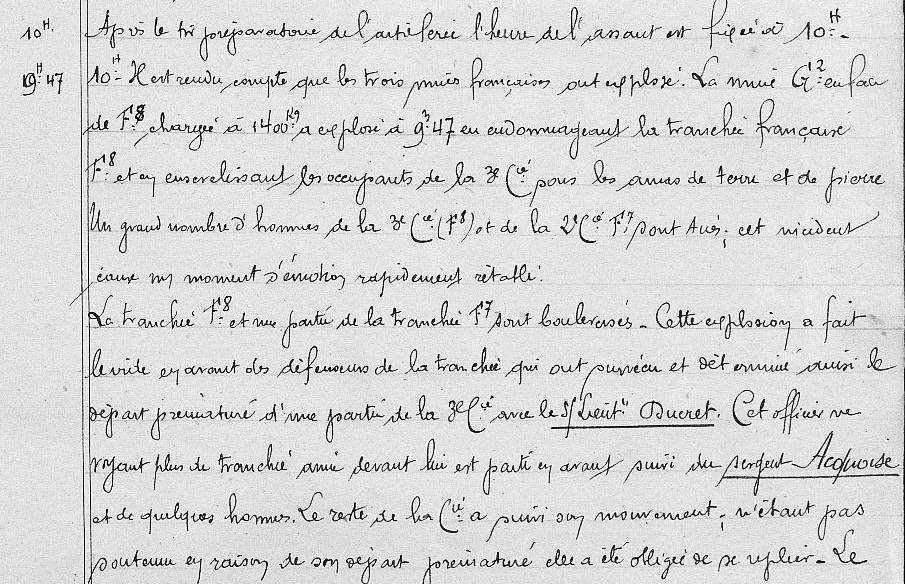 10H. Après le tir préparatoire de l'artillerie l'heure de l'assaut est fixée à 10H.
9H.47 10H Il est rendu compte que les trois mines françaises ont explosé. La mine G12 en face
de F8 chargée à 1400Kg a explosé à 9H47 en endommageant la tranchée française
F8 et en ensevelissant les occupants de la 3e Cie sous les amas de terre et de pierre
Un grand nombre d'hommes de la 3e Cie (F8) et de la 2e Cie F7 sont tués; cet incident
cause un moment d'émotion rapidement rétabli.
La tranchée F8 et une partie de la tranchée F7 sont bouleversées - Cette explosion a fait
le vide en avant des défenseurs de la tranchée qui ont survécu et déterminé ainsi le
départ prématuré d'une partie de la 3e Cie avec le S/Lieutt Ducret. Cet officier ne
voyant plus de tranchée amie devant lui est parti en avant suivi du sergent Acquoise
et de quelques hommes. Le reste de la Cie a suivi son mouvement; n'étant pas
soutenue en raison de son départ prématuré elle a été obligée de se replier - Le